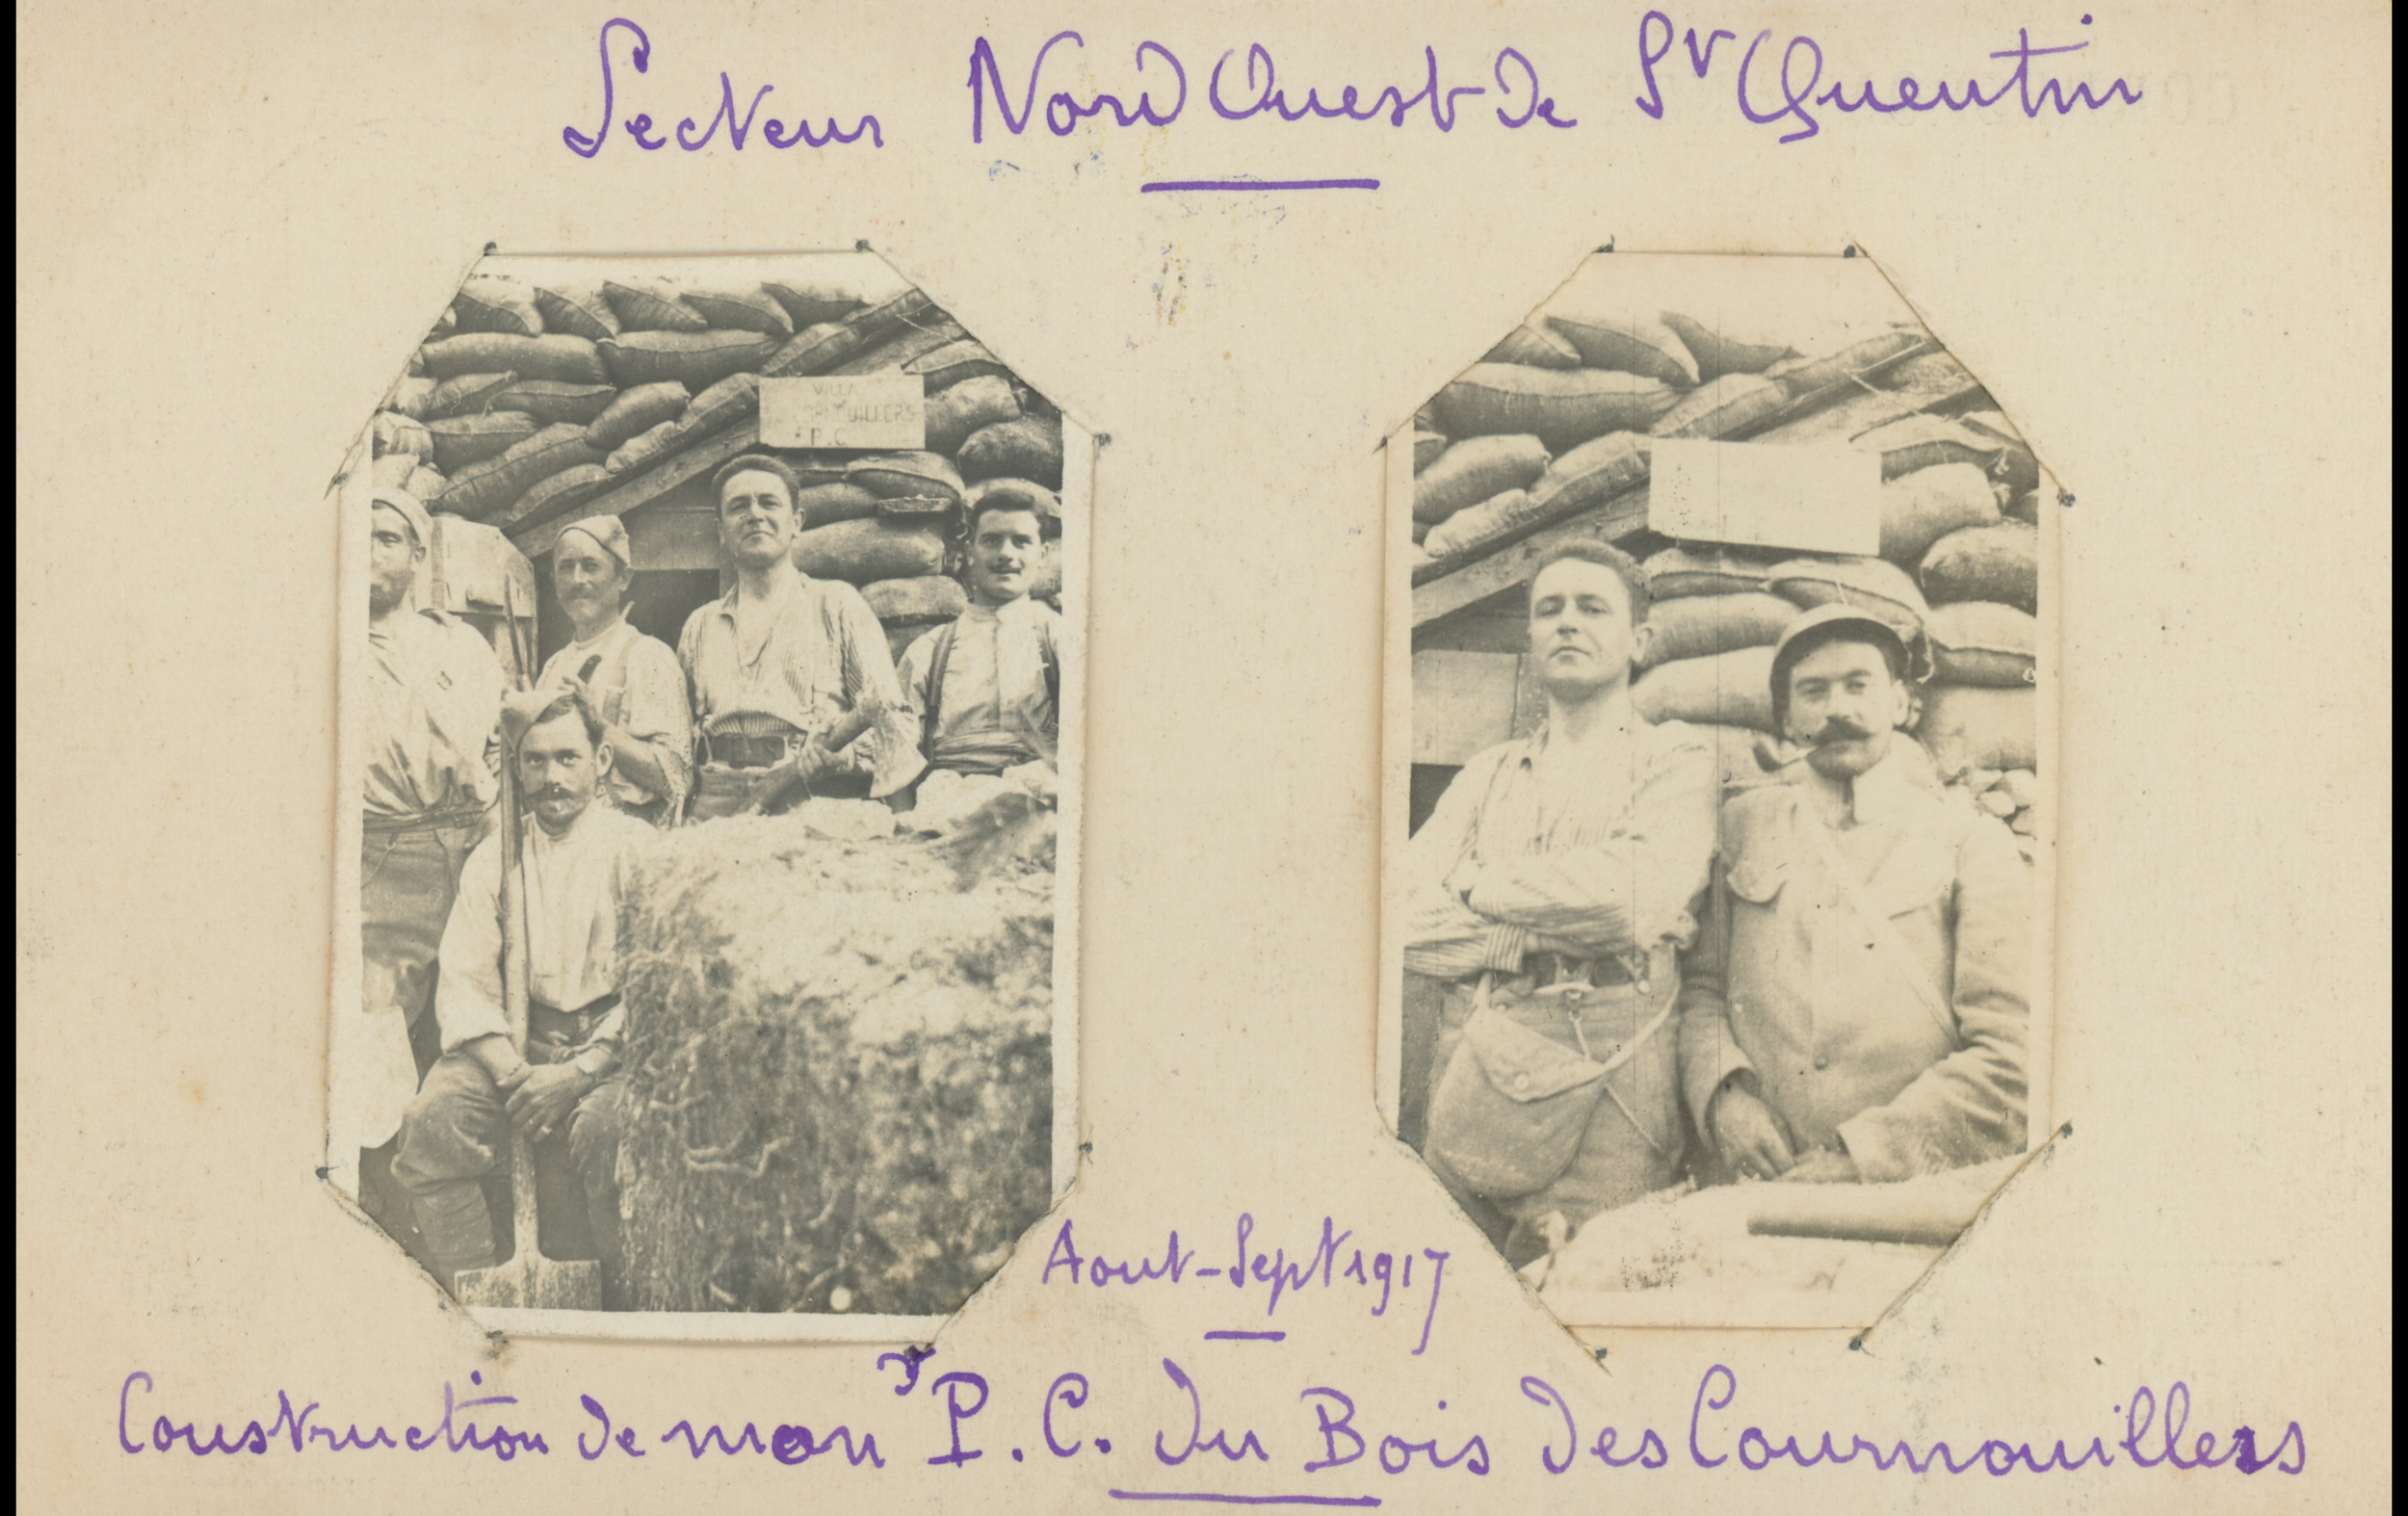 Secteur Nord Ouest de St Quentin
VILLA
CORNOUILLERS
P.C
Aout-Sept 1917
Construction de mon P.C. du Bois des Cournouillers